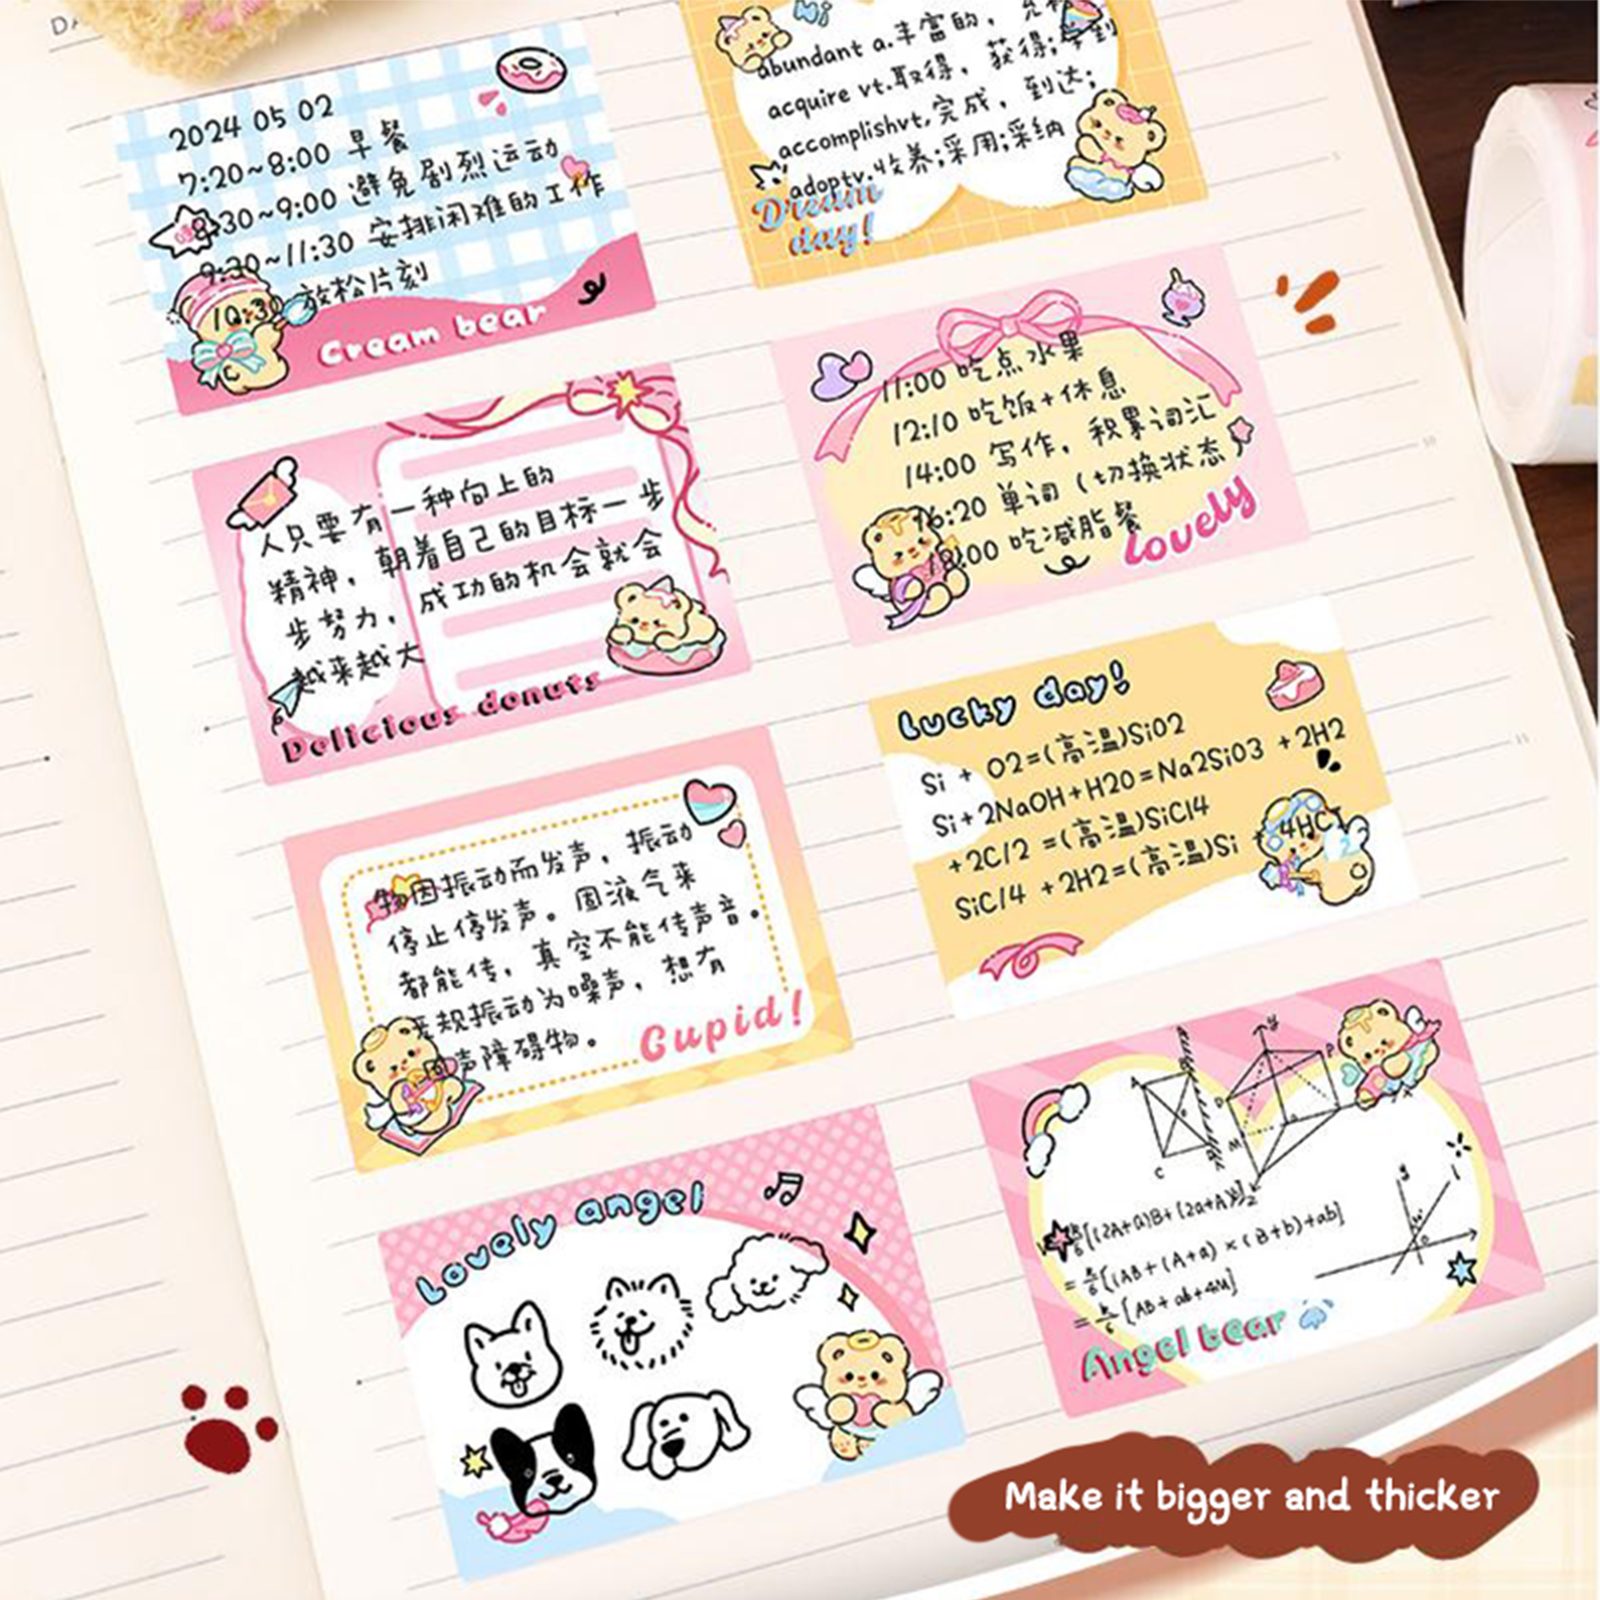 2024 05 02
7:20~8:00 早餐
8:30~9:00 避免剧烈运动
9:30~11:30 安排闲难的工作
放松片刻
Cream bear
Hi
abundant a.丰富的,
acquire vt.取得, 获得;学到
accomplishvt,完成, 到达;
adoptv.收养;采用;采纳
Dream
day!
人只要有一种向上的
精神, 朝着自己的目标一步
步努力, 成功的机会就会
越来越大
Delicious donuts
11:00 吃点水果
12:10 吃饭+休息
14:00 写作, 积累词汇
16:20 单词 (切换状态)
18:00 吃减脂餐
Lovely
物因振动而发声, 振动
停止停发声。固液气来
都能传, 真空不能传声音。
规振动为噪声, 想有
声障碍物。
Cupid!
Lucky day!
Si + O2=(高温)SiO2
Si+2NaOH+H2O=Na2SiO3 +2H2
+2C/2 =(高温)SiC/4
SiC/4 +2H2=(高温)Si + 4HCI
Lovely angel
[(2A+a)B+(2a+A)b]
=h/6[(AB+(A+a)×(B+b)+ab]
=h/6[AB+ab+4M]
Angel bear
Make it bigger and thicker